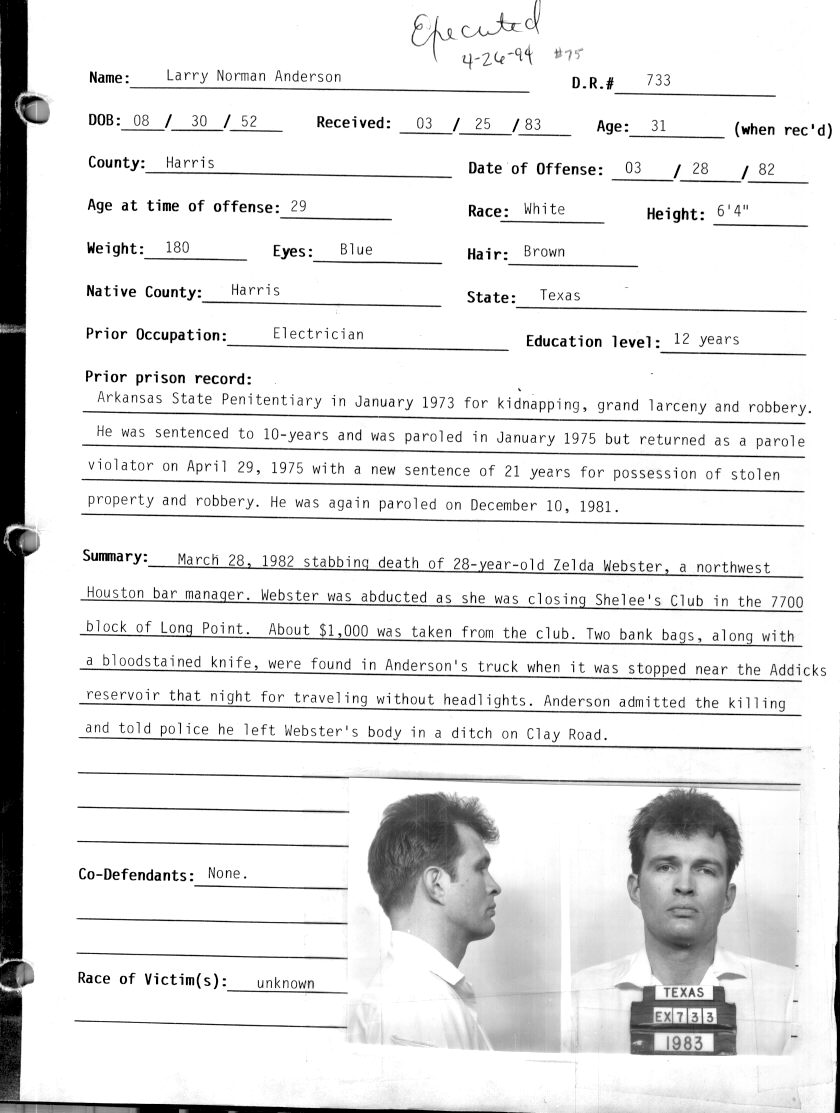 Executed
4-26-94 #75
Name: Larry Norman Anderson D.R.# 733
DOB: 08 / 30 / 52 Received: 03 / 25 / 83 Age: 31 (when rec'd)
County: Harris Date of Offense: 03 / 28 / 82
Age at time of offense: 29 Race: White Height: 6'4"
Weight: 180 Eyes: Blue Hair: Brown
Native County: Harris State: Texas
Prior Occupation: Electrician Education level: 12 years
Prior prison record:
Arkansas State Penitentiary in January 1973 for kidnapping, grand larceny and robbery.
He was sentenced to 10-years and was paroled in January 1975 but returned as a parole
violator on April 29, 1975 with a new sentence of 21 years for possession of stolen
property and robbery. He was again paroled on December 10, 1981.
Summary: March 28, 1982 stabbing death of 28-year-old Zelda Webster, a northwest
Houston bar manager. Webster was abducted as she was closing Shelee's Club in the 7700
block of Long Point. About $1,000 was taken from the club. Two bank bags, along with
a bloodstained knife, were found in Anderson's truck when it was stopped near the Addicks
reservoir that night for traveling without headlights. Anderson admitted the killing
and told police he left Webster's body in a ditch on Clay Road.
Co-Defendants: None.
Race of Victim(s): unknown
TEXAS
EX 7 3 3
1983